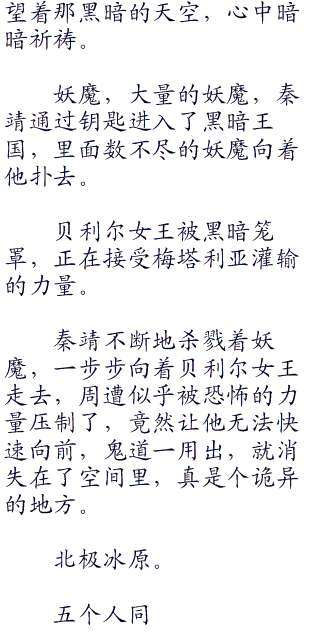 望着那黑暗的天空，心中暗
暗祈祷。
妖魔，大量的妖魔，秦
靖通过钥匙进入了黑暗王
国，里面数不尽的妖魔向着
他扑去。
贝利尔女王被黑暗笼
罩，正在接受梅塔利亚灌输
的力量。
秦靖不断地杀戮着妖
魔，一步步向着贝利尔女王
走去，周遭似乎被恐怖的力
量压制了，竟然让他无法快
速向前，鬼道一用出，就消
失在了空间里，真是个诡异
的地方。
北极冰原。
五个人同